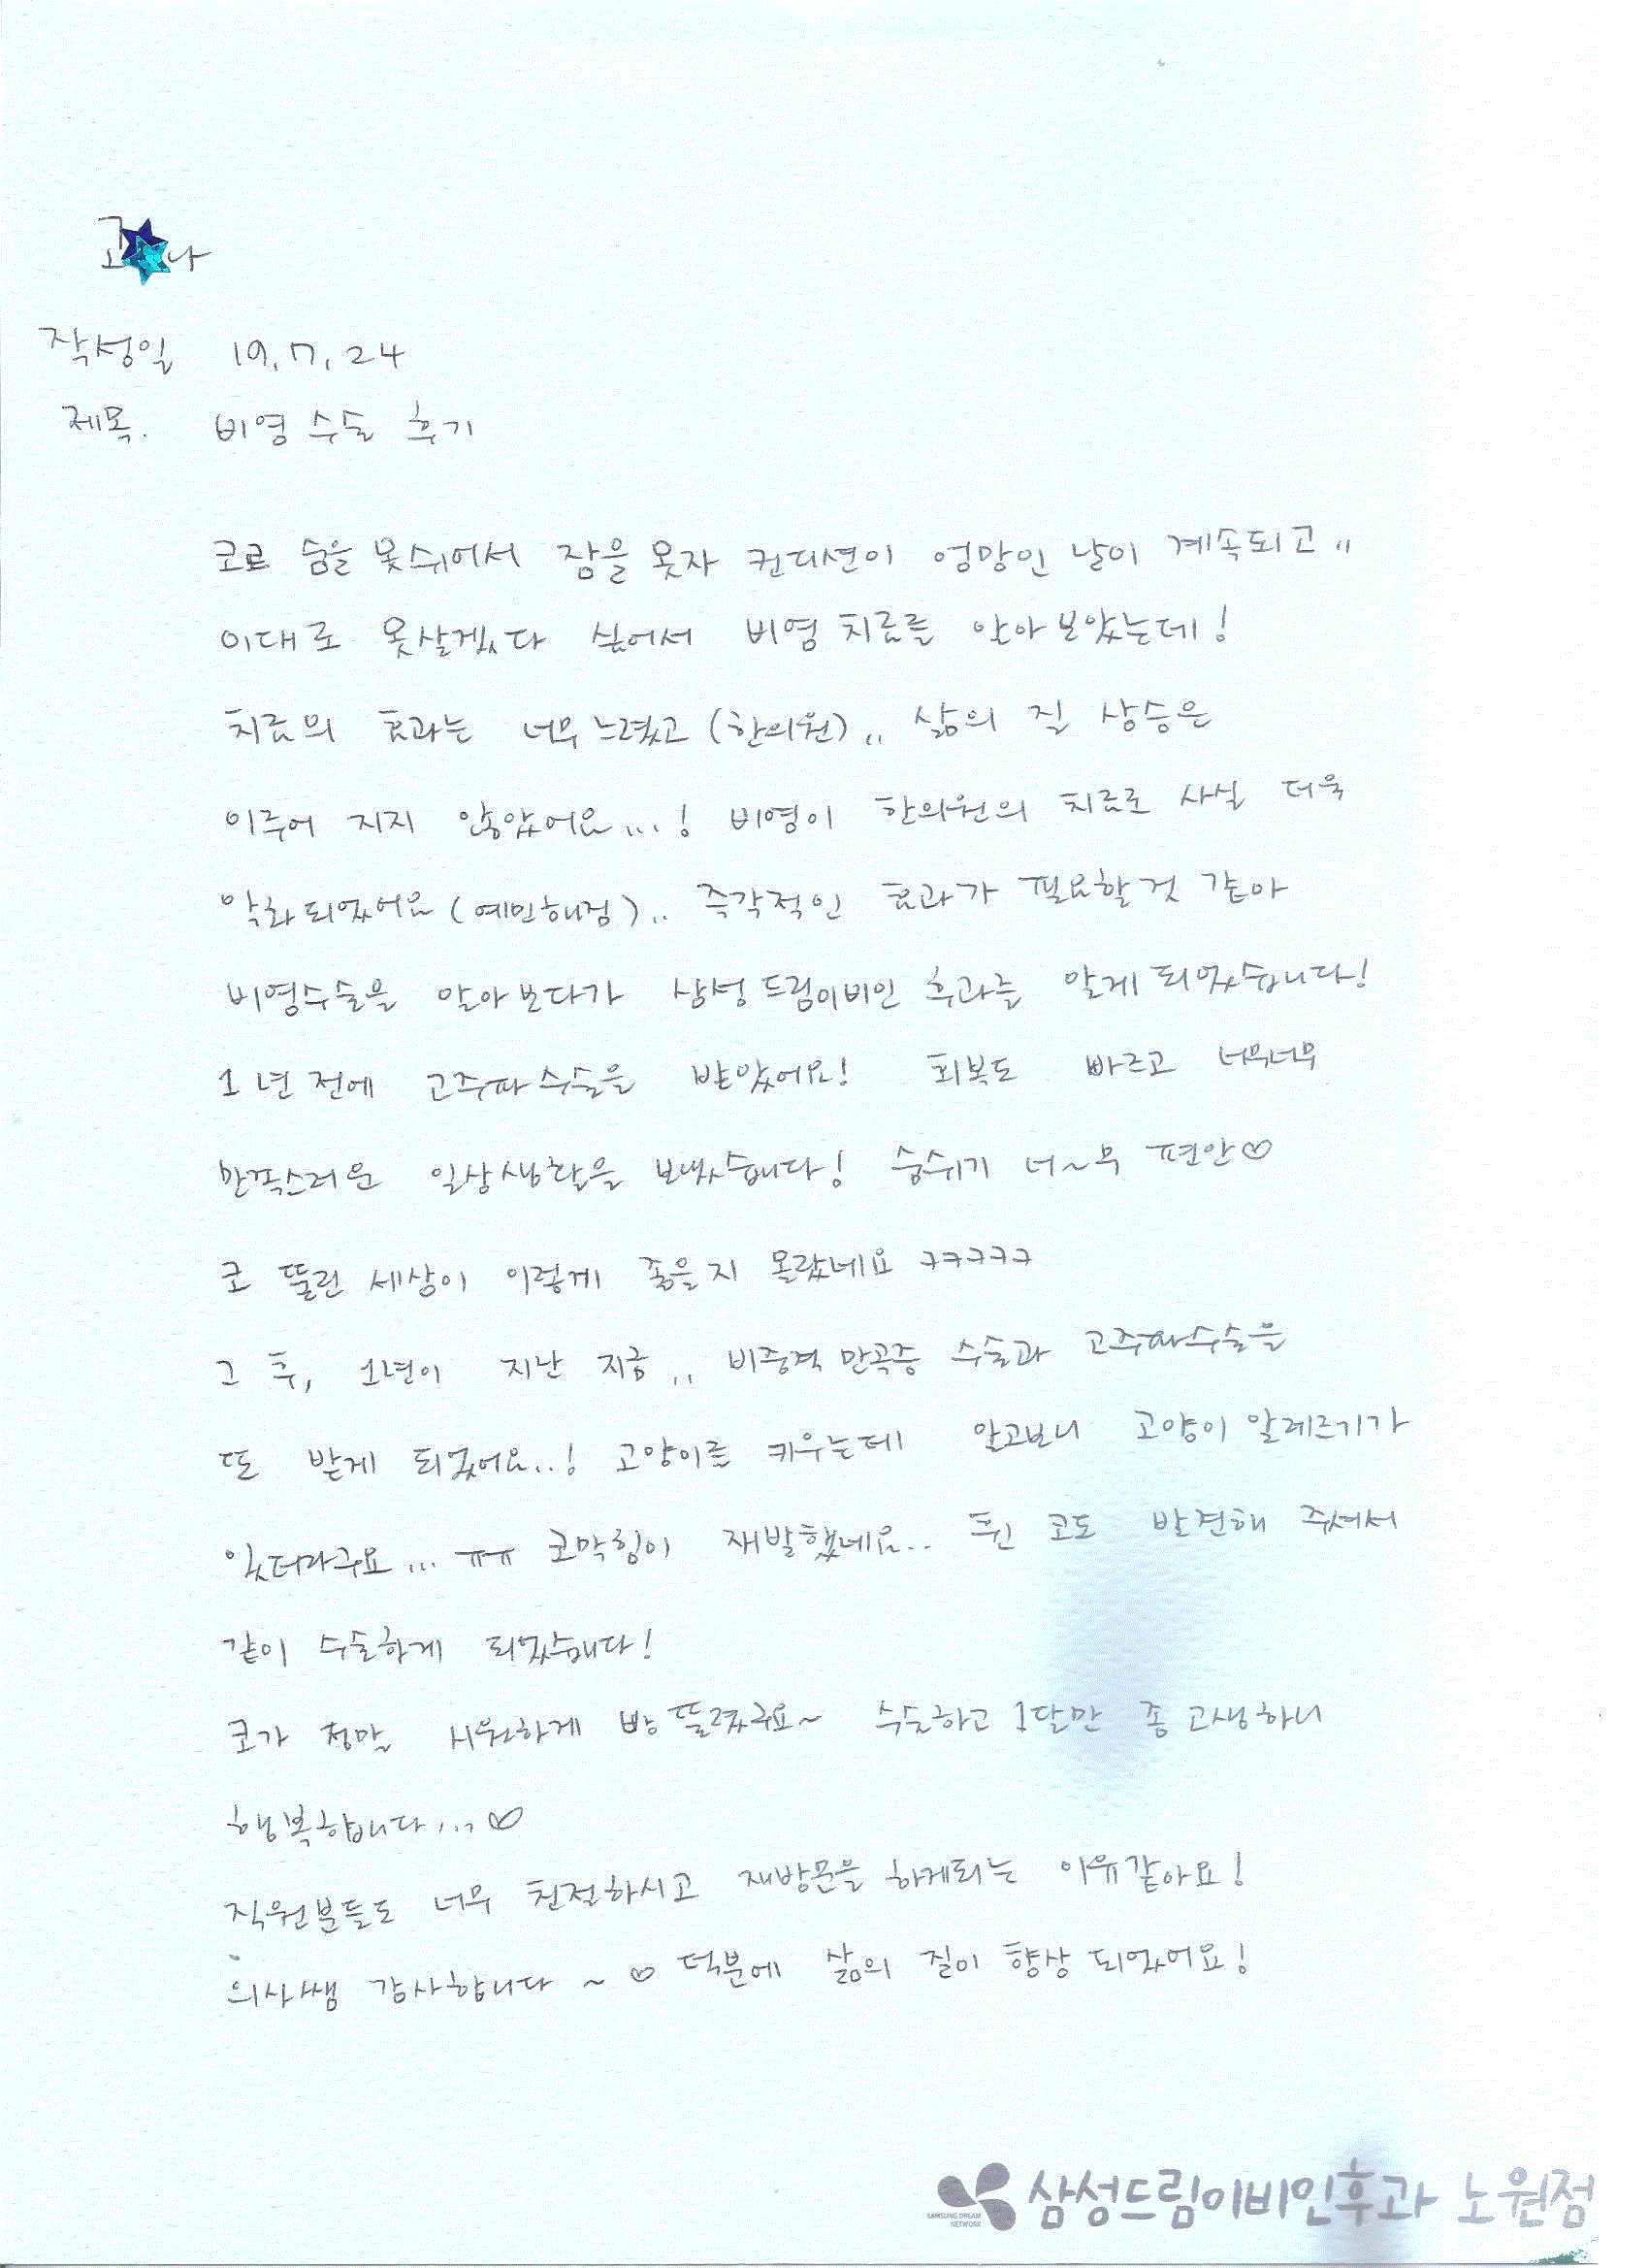 고 나
작성일 19.7.24
제목. 비염수술 후기
코로 숨을 못쉬어서 잠을 못자 컨디션이 엉망인 날이 계속되고..
이대로 못살겠다 싶어서 비염치료를 알아보았는데!
치료의 효과는 너무느렸고(한의원).. 삶의 질 상승은
이루어 지지 않았어요...! 비염이 한의원의 치료로 사실 더욱
악화되었어요(예민해짐).. 즉각적인 효과가 필요할것 같아
비염수술을 알아보다가 삼성드림이비인후과를 알게되었습니다!
1년전에 고주파수술을 받았어요! 회복도 빠르고 너무너무
만족스러운 일상생활을 보냈습니다! 숨쉬기 너~무 편안♡
코 뚫린 세상이 이렇게 좋을지 몰랐네요 ㅋㅋㅋㅋㅋ
그 후, 1년이 지난 지금.. 비중격만곡증 수술과 고주파수술을
또 받게 되었어요..! 고양이를 키우는데 알고보니 고양이알레르기가
있더라구요... ㅠㅠ 코막힘이 재발했네요.. 휜 코도 발견해 주셔서
같이 수술하게 되었습니다!
코가 정말 시원하게 뻥뚫렸구요~ 수술하고 1달만 좀 고생하니
행복합니다...♡
직원분들도 너무 친절하시고 재방문을 하게되는 이유같아요!
의사쌤 감사합니다~♡ 덕분에 삶의 질이 향상 되었어요!
SAMSUNG DREAM NETWORK 삼성드림이비인후과 노원점